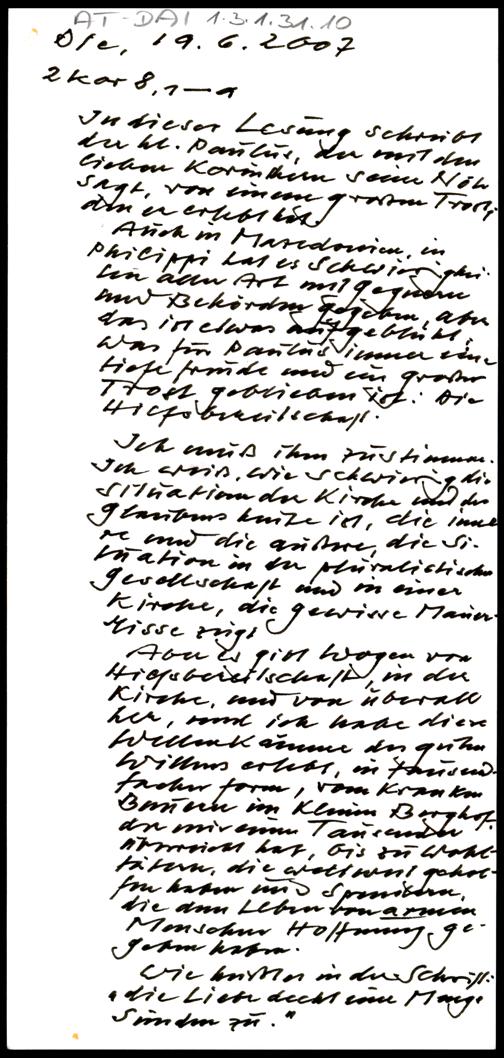 AT-DAI 1.3.1.31.10
Die, 19.6.2007
2 Kor 8,1-9
In dieser Lesung schreibt
der hl. Paulus, der mit den
lieben Korinthern seine Nöte
sagt, von einem großen Trost,
den er erlebt hat.
Auch in Mazedonien, in
Philippi hat es Schwierigkei-
ten aller Art mit Gegnern
und Behörden gegeben, aber
das ist etwas aufgeblüht,
was für Paulus immer eine
tiefe Freude und ein großer
Trost geblieben ist: Die
Hilfsbereitschaft.
Ich muß ihm zustimmen.
Ich weiß, wie schwierig die
Situation der Kirche und des
Glaubens heute ist, die inne-
re und die äußere, die Si-
tuation in der pluralistischen
Gesellschaft und in einer
Kirche, die gewisse Mauer-
Risse zeigt
Aber es gibt Wogen von
Hilfsbereitschaft, in der
Kirche, und von überall
her, und ich habe diese
Wellenkämme des guten
Willens erlebt, in tausend-
facher Form, vom kranken
Bauern im kleinen Berghof,
der mir einen Tausender
überreicht hat, bis zu Wohl-
tätern, die weltweit gehol-
fen haben und Spendern,
die dem Leben von armen
Menschen Hoffnung ge-
geben haben.
Wie heißt es in der Schrift:
"die Liebe deckt eine Menge
Sünden zu."